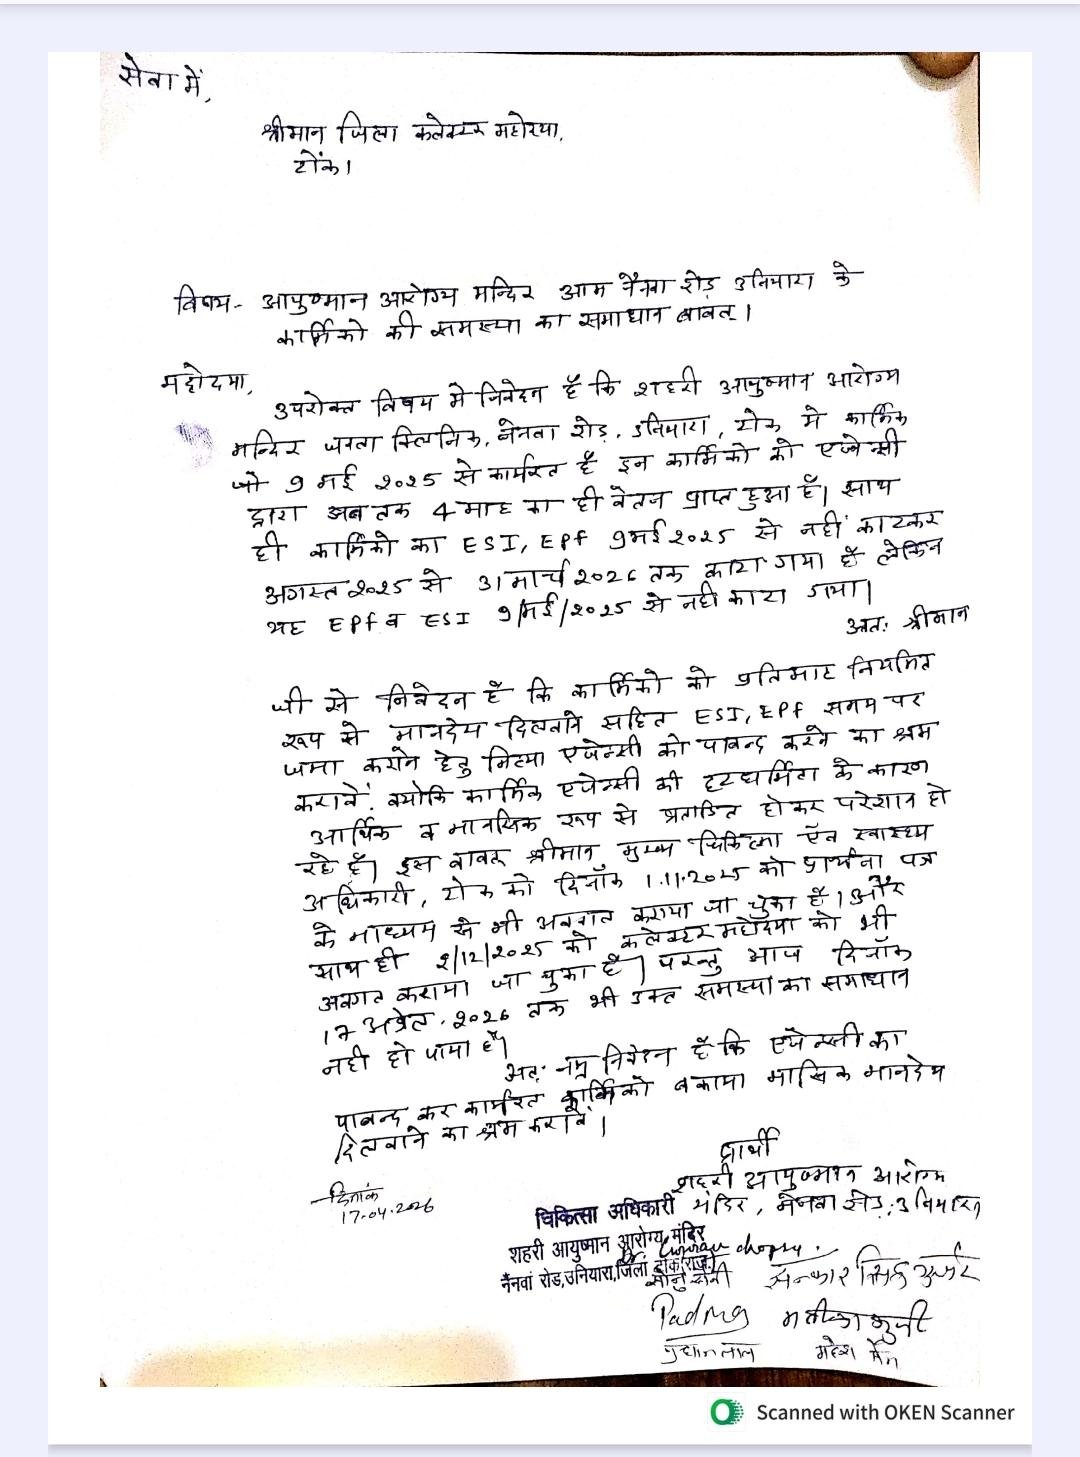 सेवा में,
श्रीमान जिला कलेक्टर महोदया,
टोंक।
विषय- आयुष्मान आरोग्य मन्दिर आम नैंनवा रोड उनियारा के
कार्मिको की समस्या का समाधान बाबत्।
महोदया,
उपरोक्त विषय मे निवेदन है कि शहरी आयुष्मान आरोग्य
मन्दिर जनता क्लिनिक, नेनवा रोड़, उनियारा, टोंक मे कार्मिक
जो 9 मई 2025 से कार्यरत है इन कार्मिको को एजेन्सी
द्वारा अब तक 4 माह का ही वेतन प्राप्त हुआ है। साथ
ही कार्मिको का ESI, EPF 9मई 2025 से नही काटकर
अगस्त 2025 से 31मार्च 2026 तक काटा गया है लेकिन
यह EPF व ESI 9/मई/2025 से नही काटा गया।
अतः श्रीमान
जी से निवेदन है कि कार्मिको को प्रतिमाह नियमित
रूप से मानदेय दिलवाने सहित ESI, EPF समय पर
जमा कराने हेतु एजेन्सी को पाबन्द करने का श्रम
करावें. क्योकि कार्मिक एजेन्सी की हटधर्मिता के कारण
आर्थिक व मानसिक रूप से प्रताडित होकर परेशान हो
रहे है। इस बाबत श्रीमान मुख्य चिकित्सा एंव स्वास्थ्य
अधिकारी, टोंक को दिनाँक 1.11.2025 को प्रार्थना पत्र
के माध्यम से भी अवगत कराया जा चुका है। और
साथ ही 2/12/2025 को कलेक्टर महोदया को भी
अवगत कराया जा चुका है। परन्तु आज दिनाँक
17 अप्रेल. 2026 तक भी उक्त समस्या का समाधान
नही हो पाया है।
अतः नम्र निवेदन है कि एजेन्सी का
पाबन्द कर कार्यरत कार्मिको बकाया मासिक मानदेय
दिलवाने का श्रम करावें।
प्रार्थी
शहरी आयुष्मान आरोग्य
दिनांक
17-04-2026
मंदिर, नेनवा रोड, उनियारा
चिकित्सा अधिकारी
शहरी आयुष्मान आरोग्य मंदिर
नैंनवां रोड,उनियारा,जिला टोंक(राज.)
सोनु सैनी
Padma
प्रधान लाल
महेश
Scanned with OKEN Scanner